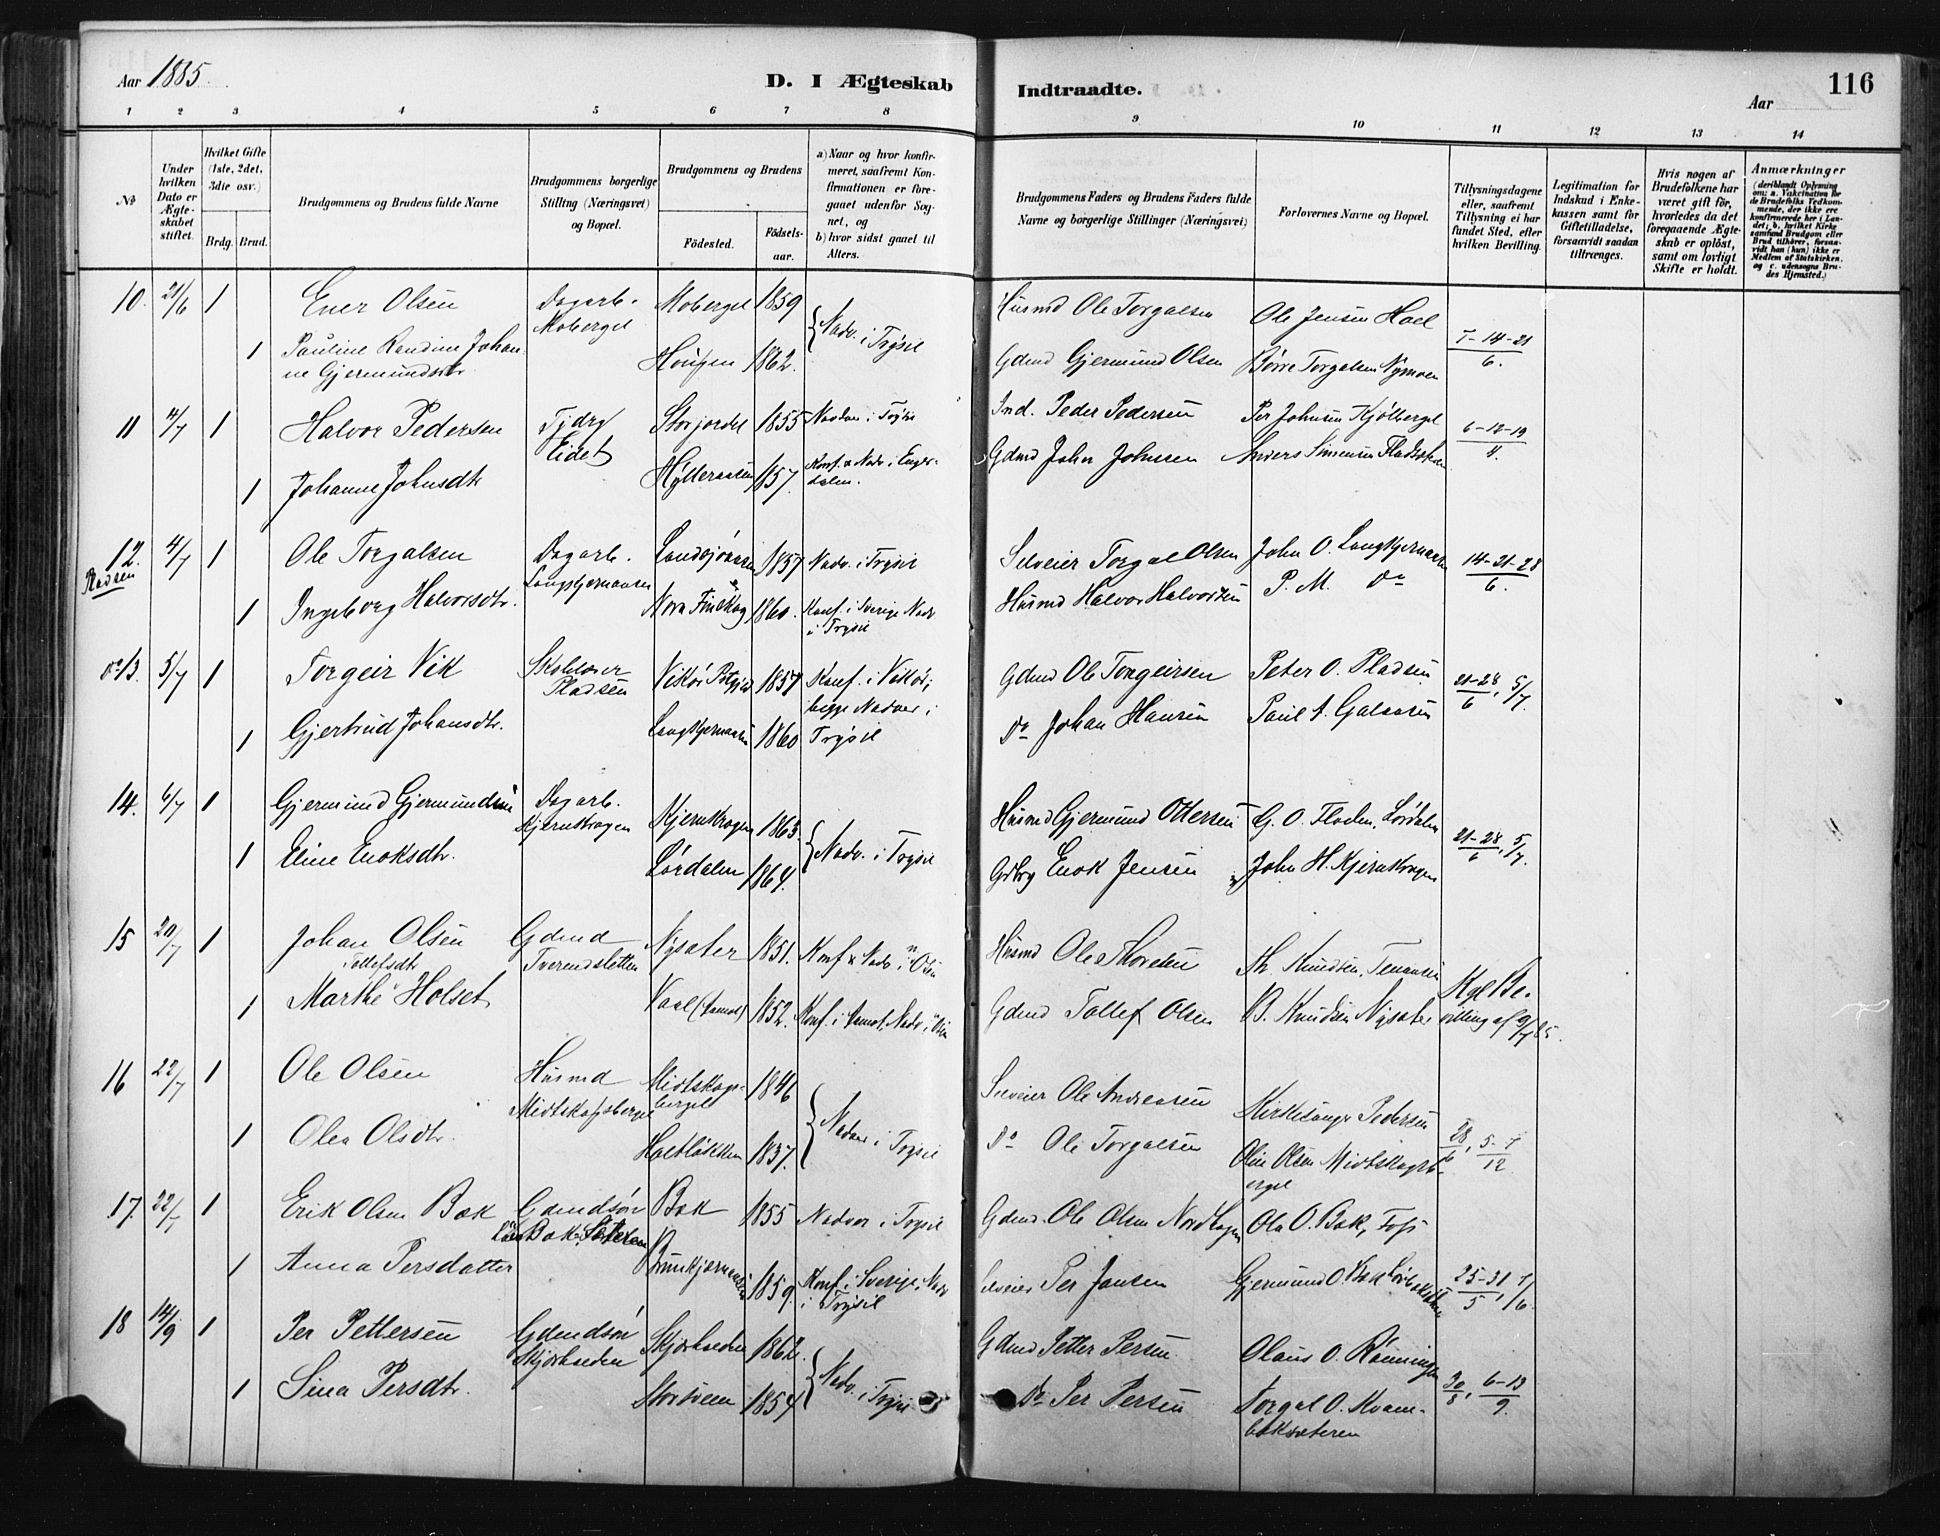 Aar 1885.
D. I Ægteskab Indtraadte.
116
Aar
1 2 3 4 5 6 7 8 9 10 11 12 13 14
No
Under hvilken Dato er Ægteskabet stiftet.
Hvilket Gifte (1ste, 2det, 3die osv.)
Brdg. Brud.
Brudgommens og Brudens fulde Navne
Brudgommens borgerlige Stilling (Næringsvei) og Bopæl.
Brudgommens og Brudens
Födested.
Födsels-aar.
a) Naar og hvor konfirmeret, saafremt Konfirmationen er foregaaet udenfor Sognet, og
b) hvor sidst gaaet til Alters.
Brudgommens Faders og Brudens Faders fulde Navne og borgerlige Stillinger (Næringsvei)
Forlovernes Navne og Bopæl.
Tillysningsdagene eller, saafremt Tillysning ei har fundet Sted, efter hvilken Bevilling.
Legitimation for Indskud i Enkekassen samt for Giftetilladelse, forsaavidt saadan tiltrænges.
Hvis nogen af Brudefolkene har været gift för, hvorledes da det foregaaende Ægteskab er oplöst, samt om lovligt Skifte er holdt.
Anmærkninger
10. 21/6 1 Ener Olsen Dagarb. Moberget Moberget 1859 Nadv. i Trysil Husmd Ole Torgalsen Ole Jensen Hoel 7-14-21/6.
1 Pauline Randine Johanne Gjermundsdtr 1862. Gdmd Gjermund Olsen Børre Torgalsen Nymoen
11 4/7 1 Halvor Pedersen Eidet Storjordet 1855 Nadver i Trysil Ind. Peder Pedersen Per Johnsen Kjølberget 6-12-19/4.
1 Johanne Johnsdtr 1857. Konf. & Nadv. i Engerdalen. Gdmd John Johnsen Anders Simensen
12. Pladsen 4/7 1 Ole Torgalsen Dagarb. Langkjernaasen 1857 Nadv. i Trysil Selveier Torgal Olsen John O. Langkjernaasen 14-21-28/6.
1 Ingeborg Halvorsdtr. Nora Finskog 1860. Konf. i Sverige Nadv. i Trysil Husmd Halvor Halvorsen P. M. Do
Do 13. 5/7 1 Torgeir Vik Pladsen 1857 Konf. i Vikör; begge Nadver i Trysil Gdmd Ole Torgeirsen Peter O. Pladsen 21-28/6, 5/7.
1 Gjertrud Johansdtr. Langkjernaasen 1860 Do Johan Hansen Paul A. Galaasen
14. 6/7 1 Gjermund Gjermundsen Dagarb. Kjernkrogen Kjernkrogen 1863 Nadv. i Trysil Husmd Gjermund Ottersen G. O. Floden, Lördalen 21-28/6, 5/7.
1 Eline Enoksdtr. Lördalen 1864. Gdbrg Enok Jensen John H. Kjernkrogen
15 20/7 1 Johan Olsen Gdmd Tverendsletten Nysæter 1851. Konf & Nadv. i Husmd Ole Thoresen Th. Knudsen, Kgl Bevilling af 9/7 85.
1 Marthe Tollefsdtr Holset 1852. Konf. i Aamot, Nadv. i Gdmd Tollef Olsen B. Knudsen Nysæter
16 22/7 1 Ole Olsen Husmd Midtskogsberget Midtskogsberget 1846 Nadver i Trysil Selveier Ole Andreasen Kirkesanger Pedersen 28/6, 5-12/7
1 Olea Olsdtr. 1857. Do Ole Torgalsen Olsen Midtskogsberget
17. 22/7 1 Erik Olsen Bæk Gdmdsön Bæk 1855 Nadver i Trysil Gdmd. Ole Olsen Nordhagen Ole O. Bæk, 25-31/5, 7/6.
1 Anna Persdatter 1859. Konf. i Sverige, Nadv. i Trysil Selveier Per Jansen Gjermund O. Bæk
18 14/9 1 Per Pettersen Gdmdsön Skjærkseden 1862. Nadv. i Trysil Gdmd Petter Persen. Olaus O. Rönningen 30/8, 6-13/9.
1 Sina Persdtr. 1854 Do Per Persen Torgal O. Kvambæksæteren